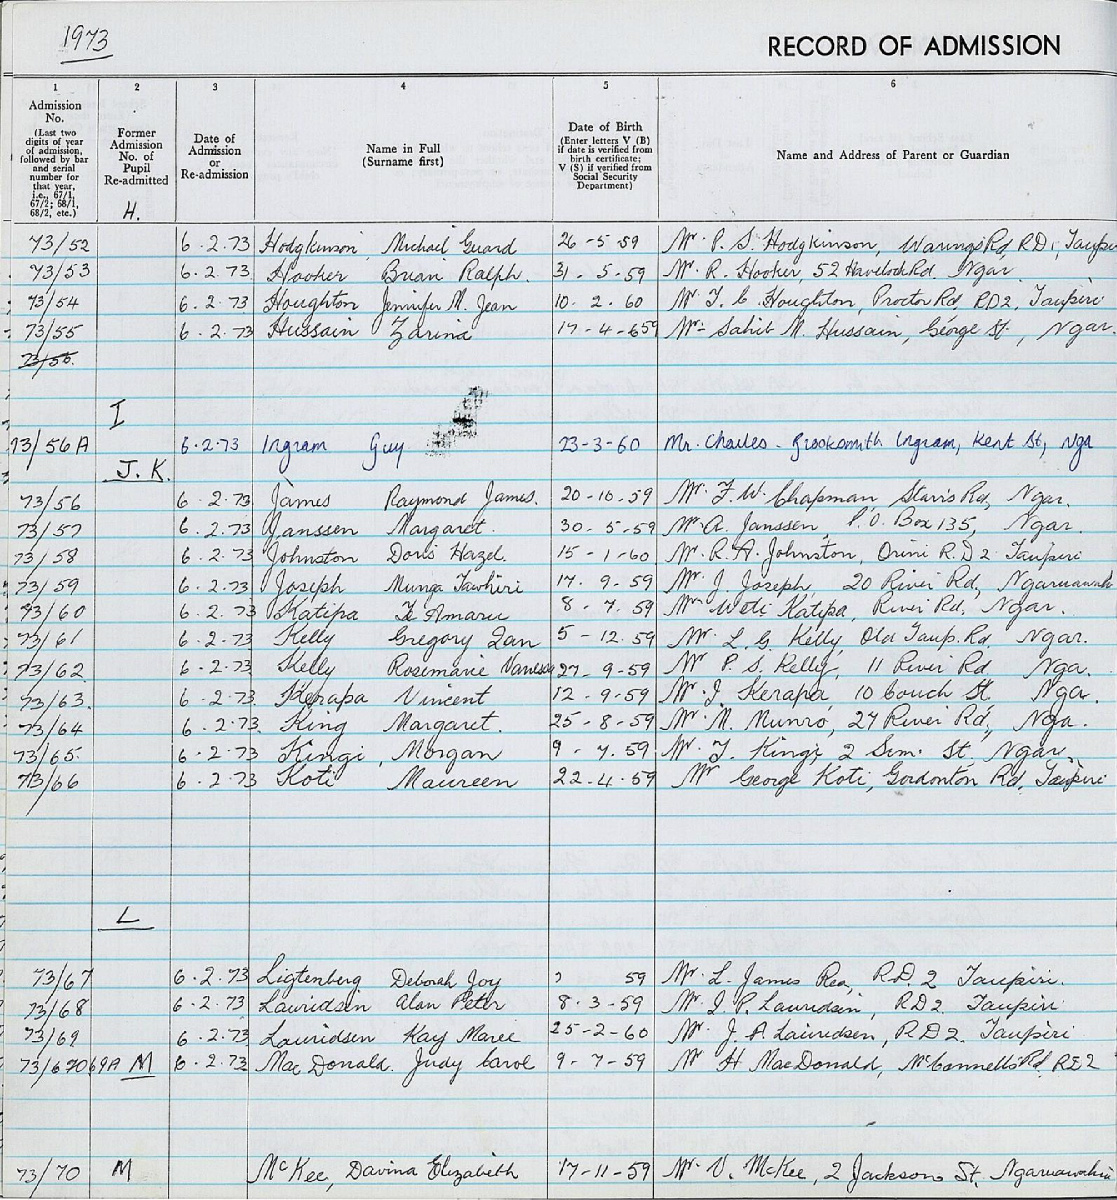 1973
RECORD OF ADMISSION
1 2 3 4 5 6
Admission No. (Last two digits of year of admission, followed by bar and serial number for that year, i.e., 67/1, 67/2; 68/1, 68/2, etc.)
Former Admission No. of Pupil Re-admitted
Date of Admission or Re-admission
Name in Full (Surname first)
Date of Birth (Enter letters V (B) if date is verified from birth certificate; V (S) if verified from Social Security Department)
Name and Address of Parent or Guardian
H.
73/52 6.2.73 Hodgkinson, Michael Guard 26-5-59 Mr. P. S. Hodgkinson, Warings Rd, RD1, Taupiri
73/53 6.2.73 Hooker Brian Ralph. 31-5-59 Mr. R. Hooker, 52 Havelock Rd, Ngar.
73/54 6.2.73 Houghton Jennifer M. Jean 10.2.60 Mr. Houghton, Proctor Rd RD2, Taupiri
73/55 6.2.73 Hussain Zarina 17-4-59 Mr. Sahib M. Hussain, George St, Ngar.
73/56.
I
73/56A 6.2.73 Ingram Guy 23-3-60 Mr. Charles Ingram, Kent St, Nga
J.K.
73/56 6.2.73 James Raymond James. 20-10-59 Mr. F. W. Chapman, Rd, Ngar.
73/57 6.2.73 Janssen Margaret. 30-5-59 Mr. A. Janssen P.O. Box 135, Ngar.
73/58 6.2.73 Johnston Doris Hazel. 15-1-60 Mr. R. A. Johnston, Orini R.D.2 Taupiri
73/59 6.2.73 Joseph Munga Tawhiri 17.9-59 Mr. J. Joseph, 20 River Rd, Ngaruawah
73/60 6.2.73 Katipa Te Amaru 8-7.59 Katipa, River Rd, Ngar.
73/61 6.2.73 Kelly Gregory Ian 5-12.59 Mr. L. G. Kelly, Old Taup. Rd, Ngar.
73/62 6.2.73 Kelly Rosemarie Vanessa 27.9-59 Mr P. S. Kelly, 11 River Rd Nga.
73/63. 6.2.73 Kerapa Vincent 12-9-59 Mr. J. Kerapa, 10 Couch St. Nga.
73/64 6.2.73 King Margaret. 25-8-59 Mr. M. Munro, 27 River Rd, Nga.
73/65. 6.2.73 Kingi, Morgan 9-7.59 Mr. T. Kingi, 2 St, Ngar.
73/66 6.2.73 Koti Maureen 22-4-59 Mr George Koti, Gordonton Rd, Taupiri
L
73/67 6.2.73 Ligtenberg Deborah Joy ? 59 Mr. L. James Rea, R.D.2 Taupiri.
73/68 6.2.73 Lauridsen Alan Peter 8.3-59 Mr. J. P. Lauridsen, RD2. Taupiri
73/69 6.2.73 Lauridsen Kay Maree 25-2-60 Mr. J. P. Lauridsen, RD2. Taupiri
73/67069A M 6.2.73 MacDonald. Judy Carol 9-7-59 Mr H MacDonald, McConnells Rd, RD2
73/70 M McKee, Davina Elizabeth 17-11-59 Mr. V. McKee, 2 Jackson St, Ngaruawahia